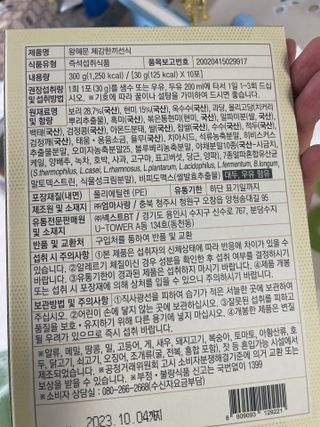 제품명 왕혜문 체감한끼선식
식품유형 즉석섭취식품 품목보고번호 20020415029917
내용량 300 g(1,250 kcal) / [30 g(125 kcal) X 10포]
권장섭취량 및 섭취방법 1회 1포 (30 g)를 생수 또는 우유, 두유 200 ml에 타서 1일 1~3회 드십시오. ※기호에 따라 꿀이나 설탕을 가미하여 드시면 좋습니다.
원재료명 및 함량 보리 28.7%(국산), 현미 15%(국산), 옥수수(국산), 과당,
추출물분말, 흑미(국산), 볶은통현미(현미, 국산), 알파미분(쌀, 국산),
백태(국산), 검정콩(국산), 아몬드분태, 쌀(국산), 찹쌀(국산), 수수(국산), 적두(국산),
검정깨(국산), 태움용소금, 율무(국산),
케일, 양배추, 녹차, 호박, 사과, 고구마, 표고버섯, 당근, 양파),
(S.thermophilus, L.casei, L.rhamnosus, L.plantarum, L.acidophilus, L.fermentum, B.longum,
말토덱스트린, 식물성크림분말), 비피도맥스(쌀발효추출분말) 대두, 우유 함유
포장재질(내면) 폴리에틸렌 (PE) 유통기한 하단 표기일까지
제조원 및 소재지 ㈜엄마사랑 / 충북 청주시 청원구 오창읍 양청송대길
유통전문판매원 및 소재지 ㈜넥스트BT / 경기도 용인시 수지구 신수로 767, 분당수지 U-TOWER A동 134호(동천동)
반품 및 교환처 구입처를 통하여 반품 및 교환
섭취 시 주의사항 ①본 제품은 섭취자의 신체상태에 따라 반응에 차이가 있을 수
있습니다. ②알레르기 체질이신 경우 성분을 확인한 후 섭취 여부를 결정하시기
바랍니다. ③유통기한이 경과된 제품은 섭취하지 마시기 바랍니다. ④제품 개봉
또는 섭취 시 포장재에 의해 상처를 입을 수 있으니 주의하시기 바랍니다.
보관방법 및 주의사항 ①직사광선을 피하여 습기가 적은 서늘한 곳에 보관하여
주십시오. ②어린이 손에 닿지 않는 곳에 보관하십시오. ③잘못된 섭취를 피하고
품질을 보호·유지하기 위해 다른 용기에 넣지 마십시오. ④개봉한 제품은 변질
될 우려가 있으므로 즉시 섭취 바랍니다.
※알류, 메밀, 땅콩, 밀, 고등어, 게, 새우, 돼지고기, 복숭아, 토마토, 아황산류, 호
두, 닭고기, 쇠고기, 오징어, 조개류(굴, 전복, 홍합 포함), 잣 등 혼입가능 시설에서
제조되었습니다. ※공정거래위원회 고시 소비자분쟁해결기준에 의거 교환 또는
보상을 받을 수 있습니다. ※부정·불량식품 신고는 국번없이 1399
※소비자 상담실 : 080-266-2668(수신자요금부담)
2023.10.04까지
8 809093 129221